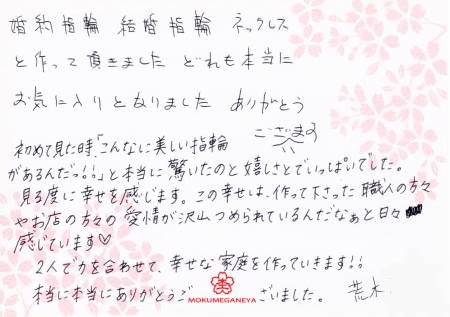 婚約指輪 結婚指輪 ネックレス
と作って頂きました どれも本当に
お気に入りとなりました ありがとう
ございます
初めて見た時、「こんなに美しい指輪
があるんだっ!!」と本当に驚いたのと嬉しさとでいっぱいでした。
見る度に幸せを感じます。この幸せは、作って下さった職人の方々
やお店の方々の愛情が沢山つめられているんだなぁと日々
感じています♡
2人で力を合わせて、幸せな家庭を作っていきます!!
本当に本当にありがとうございました。 荒木
MOKUMEGANEYA